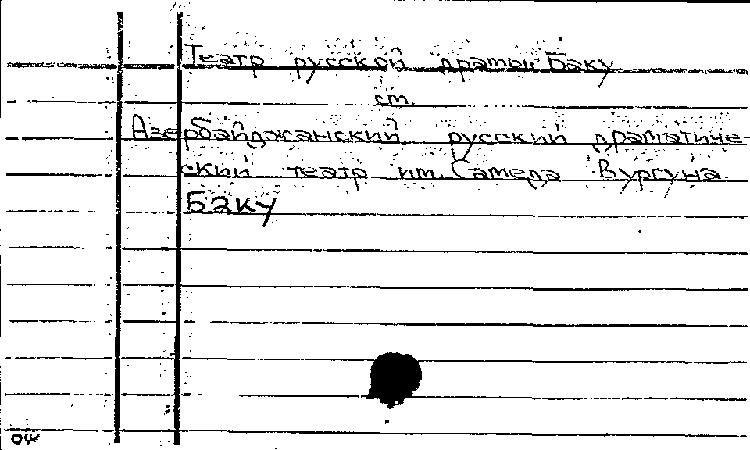 Театр русской драмы Баку
ст.
Азербайджанский русский драматиче-
ский театр им. Самеда Вургуна
Баку